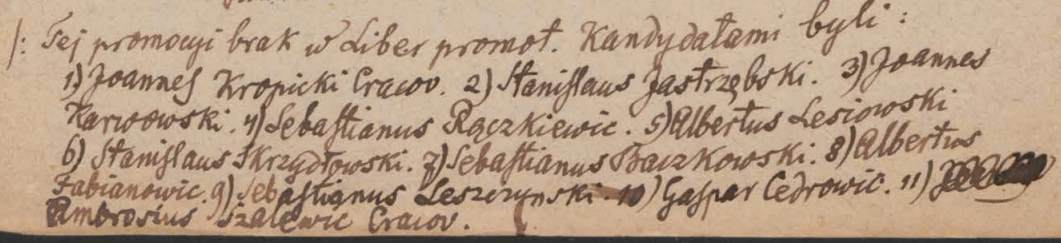 /: Tej promocyi brak w Liber promot. Kandydatami byli :
1) Joannes Kropicki Cracov. 2) Stanislaus Jastrzębski. 3) Joannes
Karwowski. 4) Sebastianus Rączkiewic. 5) Albertus Lesiowski
6) Stanislaus Skrzydłowski. 7) Sebastianus Baczkowski. 8) Albertus
Fabianowic. 9) Sebastianus Leszczynski. 10) Gaspar Cedrowic. 11)
Ambrosius Szalewic Cracov.